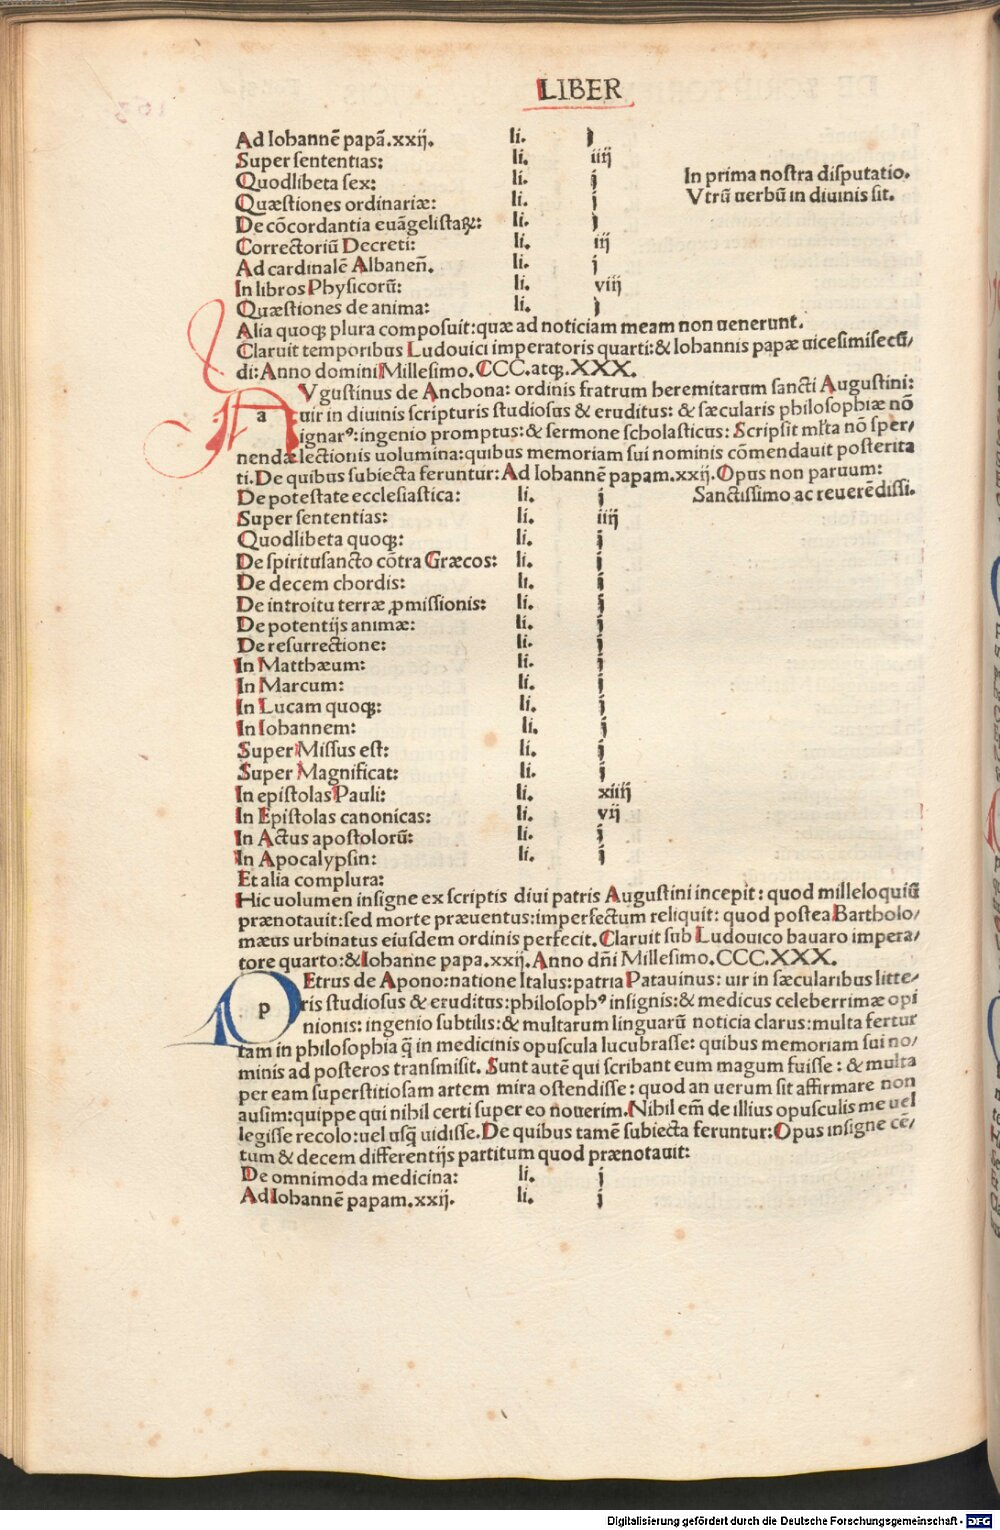 LIBER
Ad Iohannē papā.xxij. li. j
Super sententias: li. iiij
Quodlibeta sex: li. j In prima nostra disputatio.
Quæstiones ordinariæ: li. j Vtrū uerbū in diuinis sit.
De cōcordantia euāgelistaꝝ: li. j
Correctoriū Decreti: li. iij
Ad cardinalē Albaneñ. li. j
In libros Physicorū: li. viij
Quæstiones de anima: li. j
Alia quoqꝫ plura composuit:quæ ad noticiam meam non uenerunt.
Claruit temporibus Ludouici imperatoris quarti:& Iohannis papæ uicesimisecū/
di:Anno domini Millesimo.CCC.atqꝫ.XXX.
a Vgustinus de Anchona: ordinis fratrum heremitarum sancti Augustini:
uir in diuinis scripturis studiosus & eruditus: & sæcularis philosophiæ nō
ignarꝰ:ingenio promptus:& sermone scholasticus: Scripsit mľta nō sper/
nendæ lectionis uolumina:quibus memoriam sui nominis cōmendauit posterita
ti.De quibus subiecta feruntur: Ad Iohannē papam.xxij. Opus non paruum:
De potestate ecclesiastica: li. j Sanctissimo ac reuerēdissi.
Super sententias: li. iiij
Quodlibeta quoqꝫ: li. j
De spiritusancto cōtra Græcos: li. j
De decem chordis: li. j
De introitu terræ ꝓmissionis: li. j
De potentijs animæ: li. j
De resurrectione: li. j
In Matthæum: li. j
In Marcum: li. j
In Lucam quoqꝫ: li. j
In Iohannem: li. j
Super Missus est: li. j
Super Magnificat: li. j
In epistolas Pauli: li. xiiij
In Epistolas canonicas: li. vij
In Actus apostolorū: li. j
In Apocalypsin: li. j
Et alia complura:
Hic uolumen insigne ex scriptis diui patris Augustini incepit: quod milleloquiū
prænotauit:sed morte præuentus:imperfectum reliquit: quod postea Bartholo/
mæus urbinatus eiusdem ordinis perfecit. Claruit sub Ludouico bauaro impera/
tore quarto:& Iohanne papa.xxij. Anno dñi Millesimo.CCC.XXX.
p Etrus de Apono:natione Italus:patria Patauinus: uir in sæcularibus litte/
ris studiosus & eruditus:philosophꝰ insignis:& medicus celeberrimæ opi
nionis: ingenio subtilis:& multarum linguarū noticia clarus:multa fertur
tam in philosophia q̄ in medicinis opuscula lucubrasse: quibus memoriam sui no/
minis ad posteros transmisit. Sunt autē qui scribant eum magum fuisse: & multa
per eam superstitiosam artem mira ostendisse: quod an uerum sit affirmare non
ausim:quippe qui nihil certi super eo nouerim.Nihil em̄ de illius opusculis me uel
legisse recolo:uel usq̄ uidisse.De quibus tamē subiecta feruntur:Opus insigne cē/
tum & decem differentijs partitum quod prænotauit:
De omnimoda medicina: li. j
Ad Iohannē papam.xxij. li. j
Digitalisierung gefördert durch die Deutsche Forschungsgemeinschaft - DFG